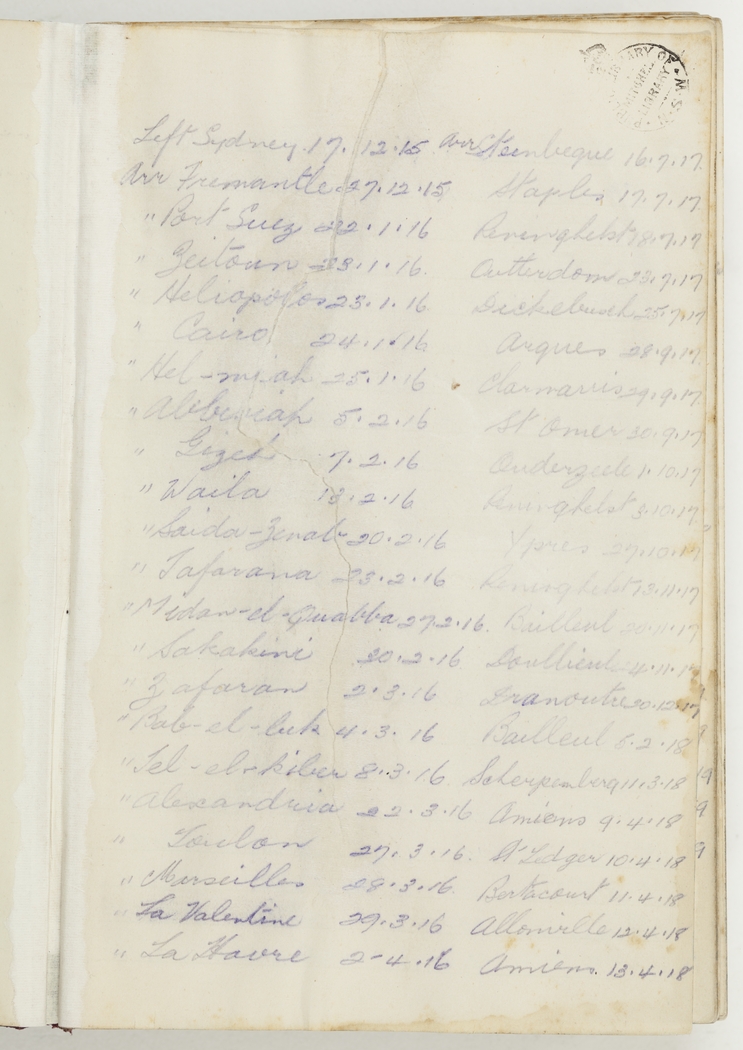 Left Sydney 17.12.15 Arr Steenbeque 16.7.17
Arr Fremantle 27.12.15 Staples 17.7.17
" Port Suez 22.1.16 Reninghelst 18.7.17
" Zeitoun 23.1.16. Outterdom 23.7.17
" Heliopolos 23.1.16 Dickebusch 25.7.17
" Cairo 24.1.16 Arques 28.9.17
" Hel-mi-ah 25.1.16 Clarmarris 29.9.17
" Abbeviah 5.2.16 St Omer 30.9.17
" Gizeh 7.2.16 Ouderzeele 1.10.17
" Waila 13.2.16 Reninghelst 3.10.17
" Saida-Zenab 20.2.16 Ypres 27.10.17
" Tafarana 23.2.16 Reninghelst 13.11.17
" Midan-el-Quabba 27.2.16. Bailleul 20.11.17
" Sakakini 30.2.16 Doullieul 4.11.17
" Zafaran 2.3.16 Dranoutre 20.12.17
" Bab-el-luk 4.3.16 Bailleul 6.2.18
" Tel-el-kiber 8.3.16. Scherpenberg 11.3.18
" Alexandria 22.3.16 Amiens 9.4.18
" Toulon 27.3.16. St Ledger 10.4.18
" Marseilles 28.3.16. Bertacourt 11.4.18
" La Valentine 29.3.16 Allonville 12.4.18
" La Havre 2-4.16 Amiens. 13.4.18